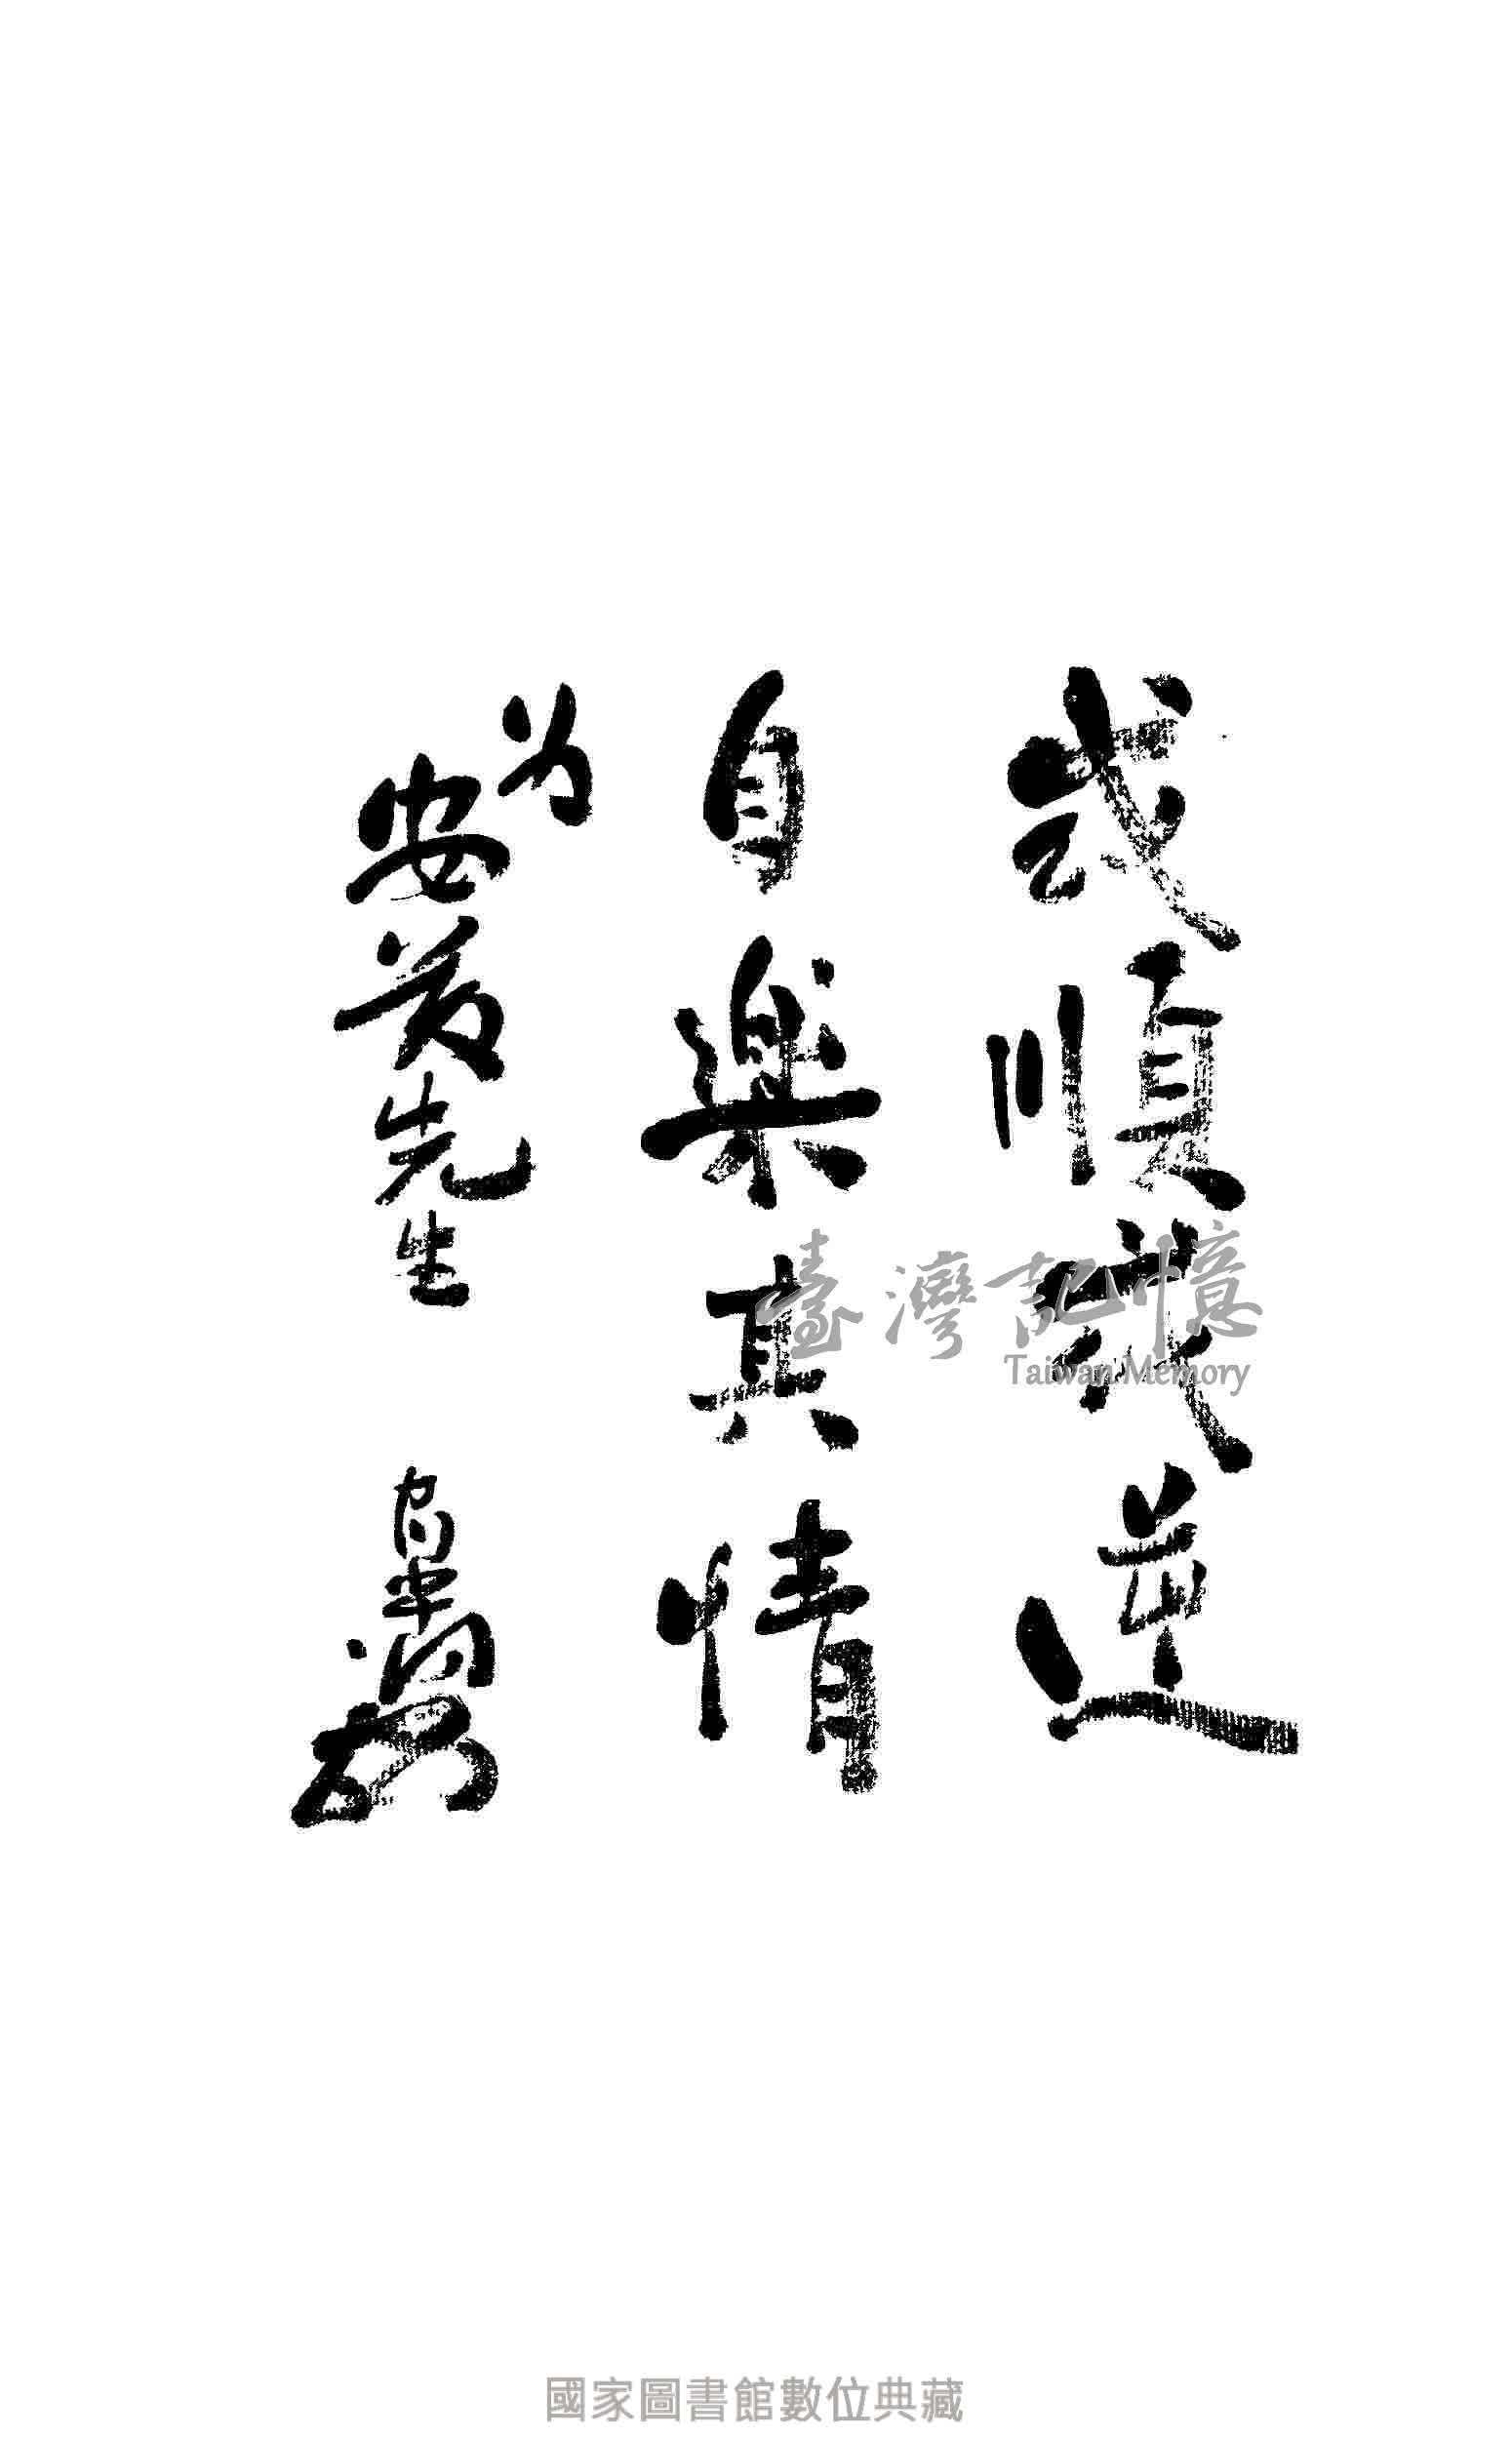 或順或逆
自樂真情
为
安美先生
臺灣記憶
Taiwan Memory
國家圖書館數位典藏